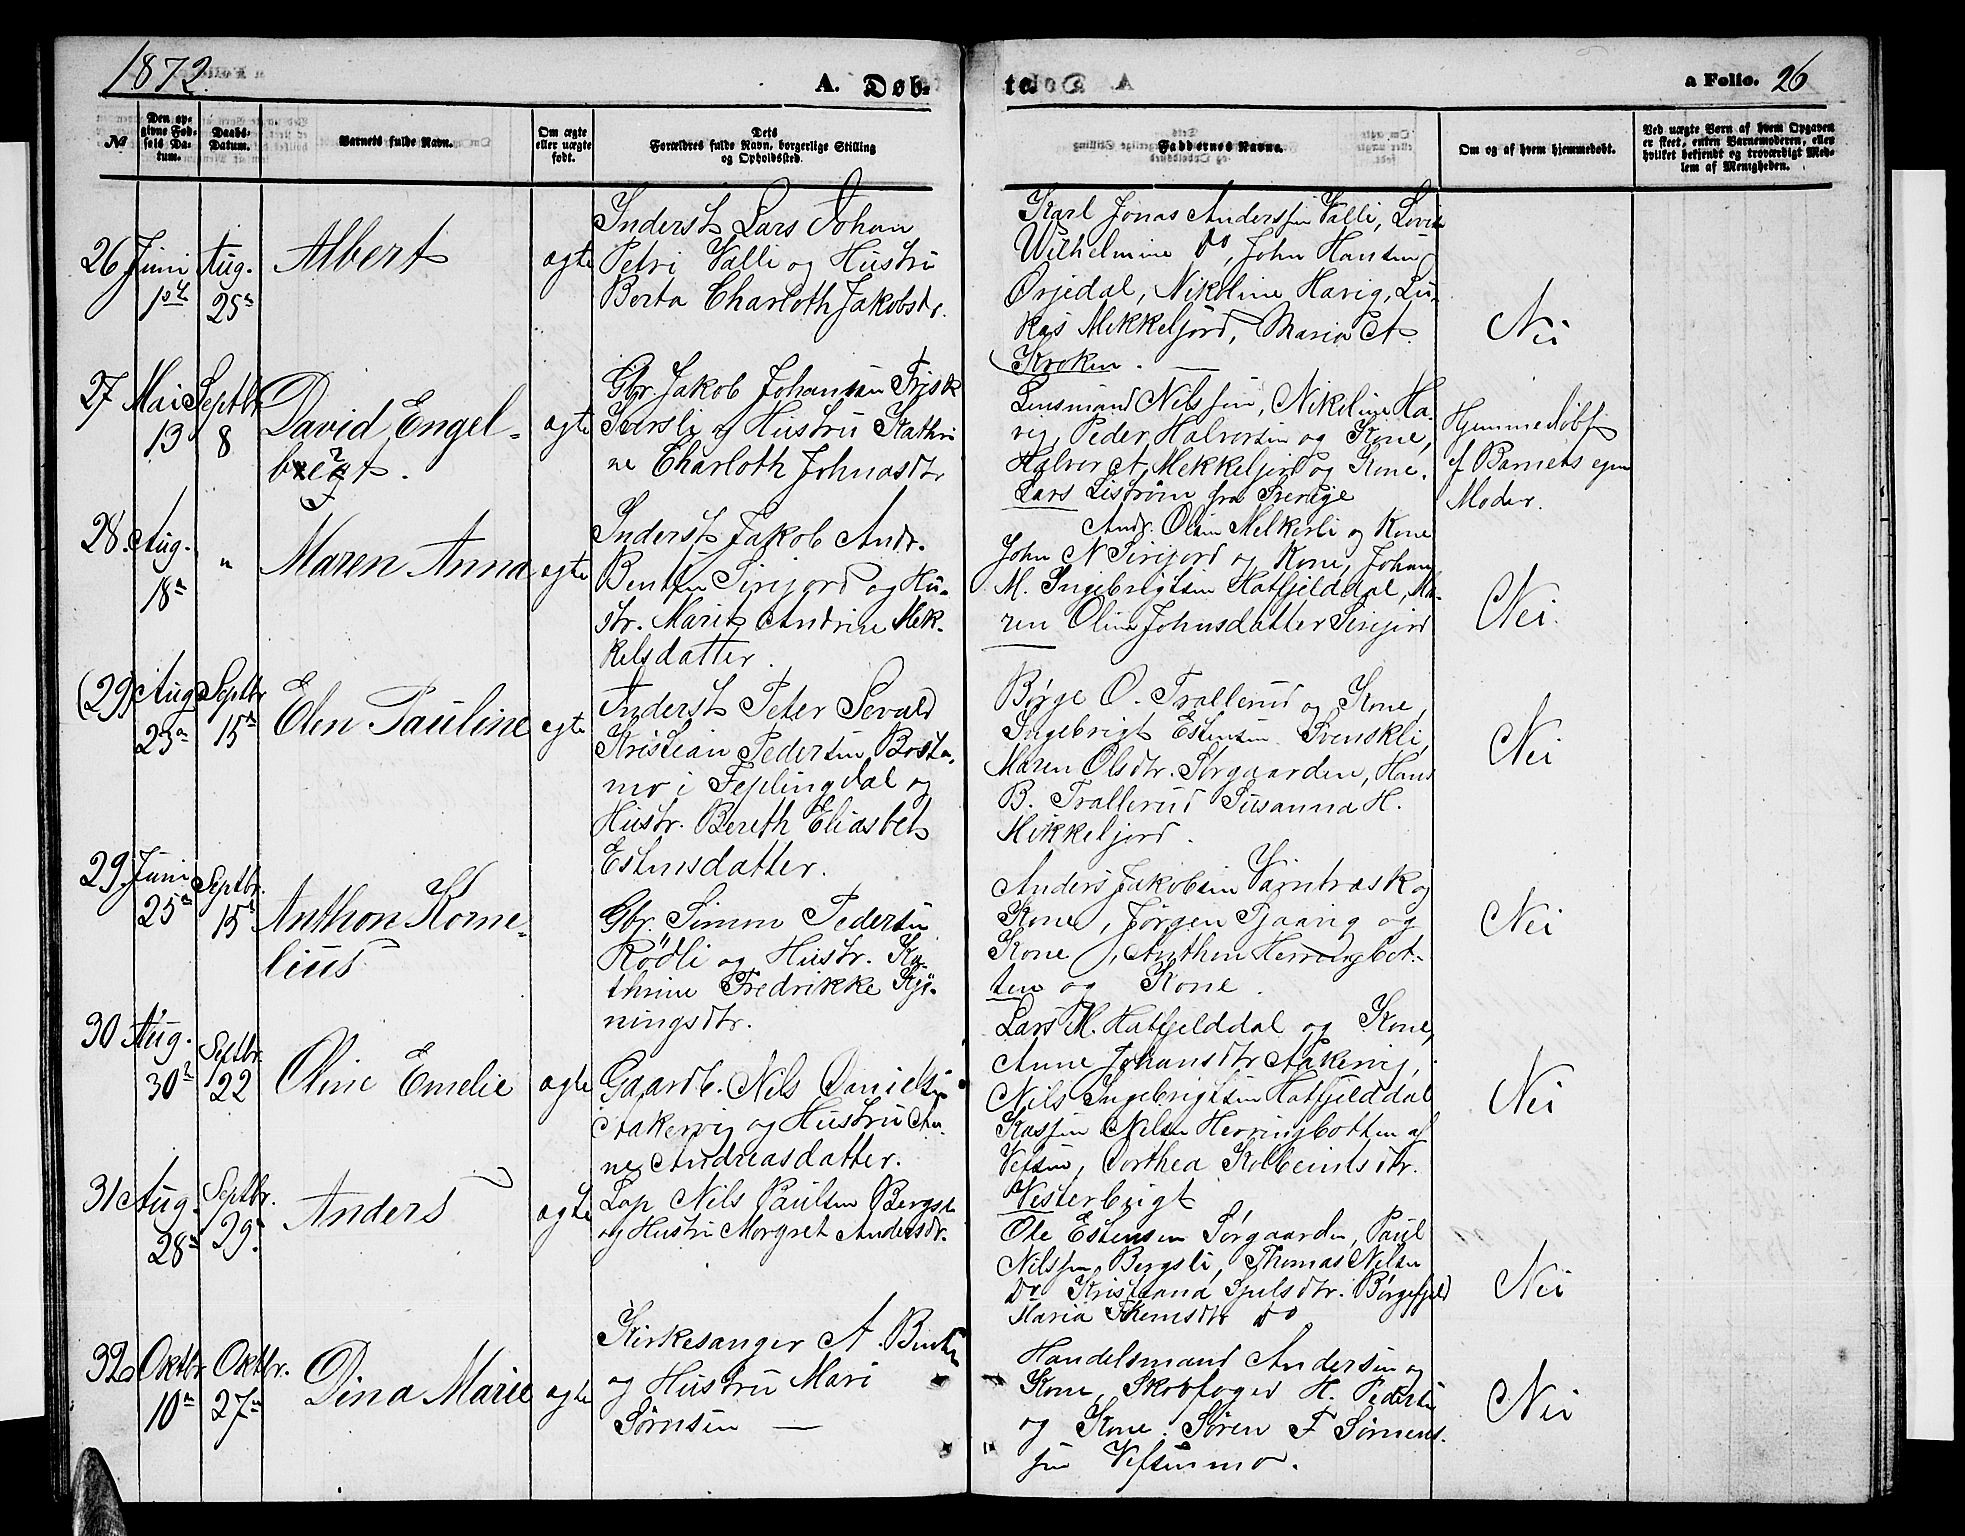 1872.
A. Døb-
te.
a Folio. 26
№
Den op-
givne Fød-
sels Da-
tum.
Daabs-
Datum.
Barnets fulde Navn.
Om ægte
eller uægte
født.
Dets
Forældres fulde Navn, borgerlige Stilling
og Opholdssted.
Faddernes Navne.
Om og af hvem hjemmedøbt.
Ved uægte Børn af hvem Opgaven
er skeet, enten Barnemoderen, eller
hvilket bekjendt og troværdigt Med-
lem af Menigheden.
26 Juni
1ste
Aug.
25de
Albert
ægte
Inderst Lars Johan
Petri Valli og Hustru
Berta Charloth Jakobsdr.
Karl Jonas Anderssen Valli, Lovise
Wilhelmine Do, John Hansen
Ørjedal, Nikoline Havig, Lu-
kas Mikkeljord, Maria A.
Kroken.
Nei
27 Mai
13
Septbr.
8
David Engel-
bregt.
ægte
Gbr. Jakob Johansen Frisk
Iversli og Hustru Kathri-
ne Charloth Johnasdtr
Lensmand Nilssen, Nikoline Ha-
vig, Peder Halvorsen og Kone,
Halvor A. Mekkeljord og Kone.
Lars Liström fra Sverige
Hjemmedøbt
af Barnets egen
Moder.
28. Aug.
18de
"
Maren Anna
ægte
Inderst Jakob Andr.
Bentsen Sirijord og Hu-
str. Marit Andrine Mek-
kelsdatter.
Andr. Olsen Melkerli og Kone
John N Sirijord og Kone, Johan
M. Ingebrigtsen Hatfjelddal, Ma-
ren Oline Johnsdatter Sirijord
Nei.
(29) Aug.
23de
Septbr
15de
Elen Pauline
ægte
Inderst Peter Sevald
Kristian Pedersen Bosta-
mo i Fiplingdal og
Hustr. Bereth Eliasbet
Estensdatter.
Børge O. Trallerud og Kone,
Ingebrigt Estensen Svenskli,
Maren Olsdtr. Sørgaarden, Hans
B. Trallerud Susanna H.
Mikkeljord.
Nei
29. Juni
25de
Septbr.
15de
Anthon Korne-
lius
Gbr. Simon Pedersen
Rödli og Hustr. Ka-
thrine Fredrikke Kjö-
ningsdtr.
Anders Jakobsen Varntræsk og
Kone, Jørgen Tjaavig og
Kone, Anthon Herringbot-
ten og Kone.
Nei
30 Aug.
30te
Septbr.
22
Oline Emelie
ægte
Gaardb. Nils Danielsen
Aakervig og Hustru An-
ne Andreasdatter.
Lars M. Hatfjelddal og Kone,
Anne Johansdtr Aakervig,
Nils Ingebrigtsen Hatfjelddal
Kassen Nilsen Herringbotten af
Vefsen, Dorthea Kolbeinsdtr.
Vesterbugt
Nei
31 Aug.
28de
Septbr.
29.
Anders
ægte
Lap Nils Paulsen Bergsli
og Hustru Margret Andersdr.
Ole Estensen Sørgaarden, Paul
Nilssen Bergsli, Thomas Nilsen
Do Kristiana Sjulsdtr. Børgefjeld
Maria Thomsdtr do
Nei
32 Oktbr
10de
Oktbr.
27de
Dina Marie
ægte
Kirkesanger A. Bentsen
og Hustru Mari
Sørnsen —
Handelsmand Andersen og
Kone, Skovfoged H. Pedersen
og Kone. Søren F Sørnens-
sen Vefsenmo.
Nei